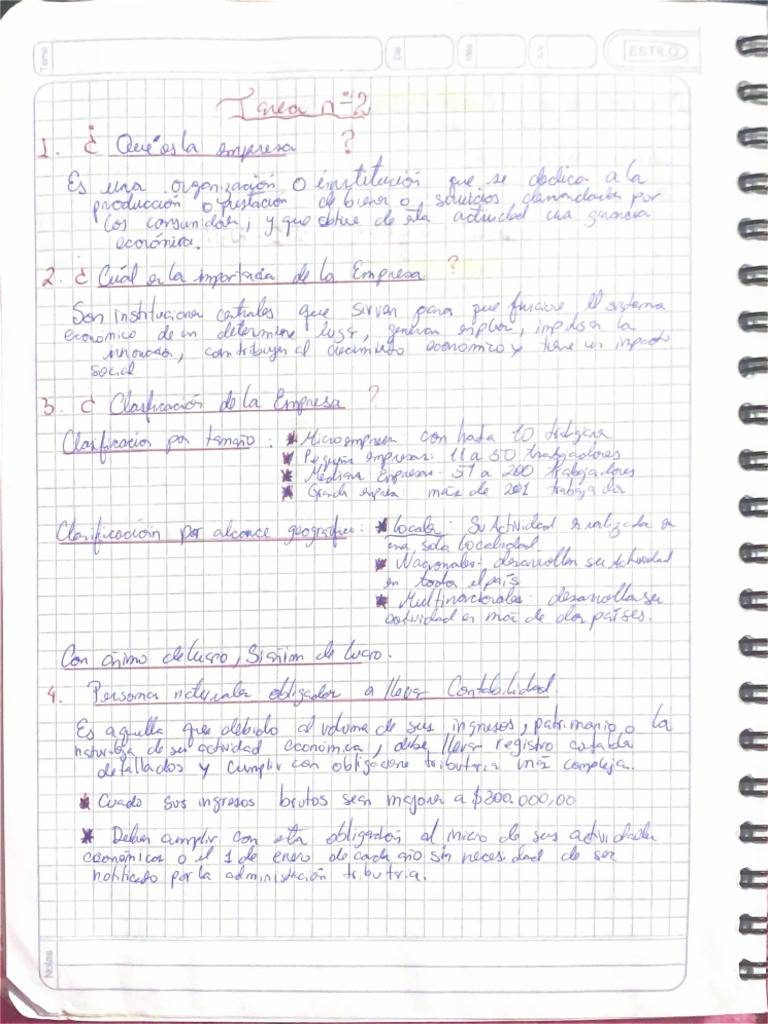 Tema
Dia
Mes
Año
ESTILO
Tarea nº2
1. ¿ Que es la empresa ?
Es una organización o institución que se dedica a la
producción o prestación de bienes o servicios demandados por
los consumidores; y que obtiene de esta actividad una ganancia
económica.
2. ¿ Cuál es la importancia de la Empresa ?
Son instituciones centrales que sirven para que funcione el sistema
económico de un determine lugar, generan empleos, impulsan la
innovación, contribuyen al crecimiento económico y tiene un impacto
social
3. ¿ Clasificación de la Empresa ?
Clasificacion por tamaño : * Microempresa con hasta 10 trabajora
* Pequeña empresas: 11 a 50 trabajadores
* Mediana Empresas: 51 a 200 trabajadores
* Grande empresa más de 201 trabajador
Clasificación por alcance geográfico: * Locales: Su Actividad realizada en
una sola localidad
* Nacionales: desarrollan su actividad
en todo el país
* Multinacionales: desarrolla su
actividad en más de dos países.
Con ánimo de lucro, Sin ánimo de lucro.
4. Persona naturales obligadas a llevar Contabilidad
Es aquella que debido al volumen de sus ingresos, patrimonio o la
naturaleza de su actividad económica, debe llevar registro contable
detallados y cumplir con obligacione tributaria más compleja.
* Cuado sus ingresos brutos sean mayores a $300.000,00
* Deben cumplir con esta obligación al inicio de sus actividades
económicas o el 1 de enero de cada año sin necesidad de ser
notificado por la administración tributaria.
Notas